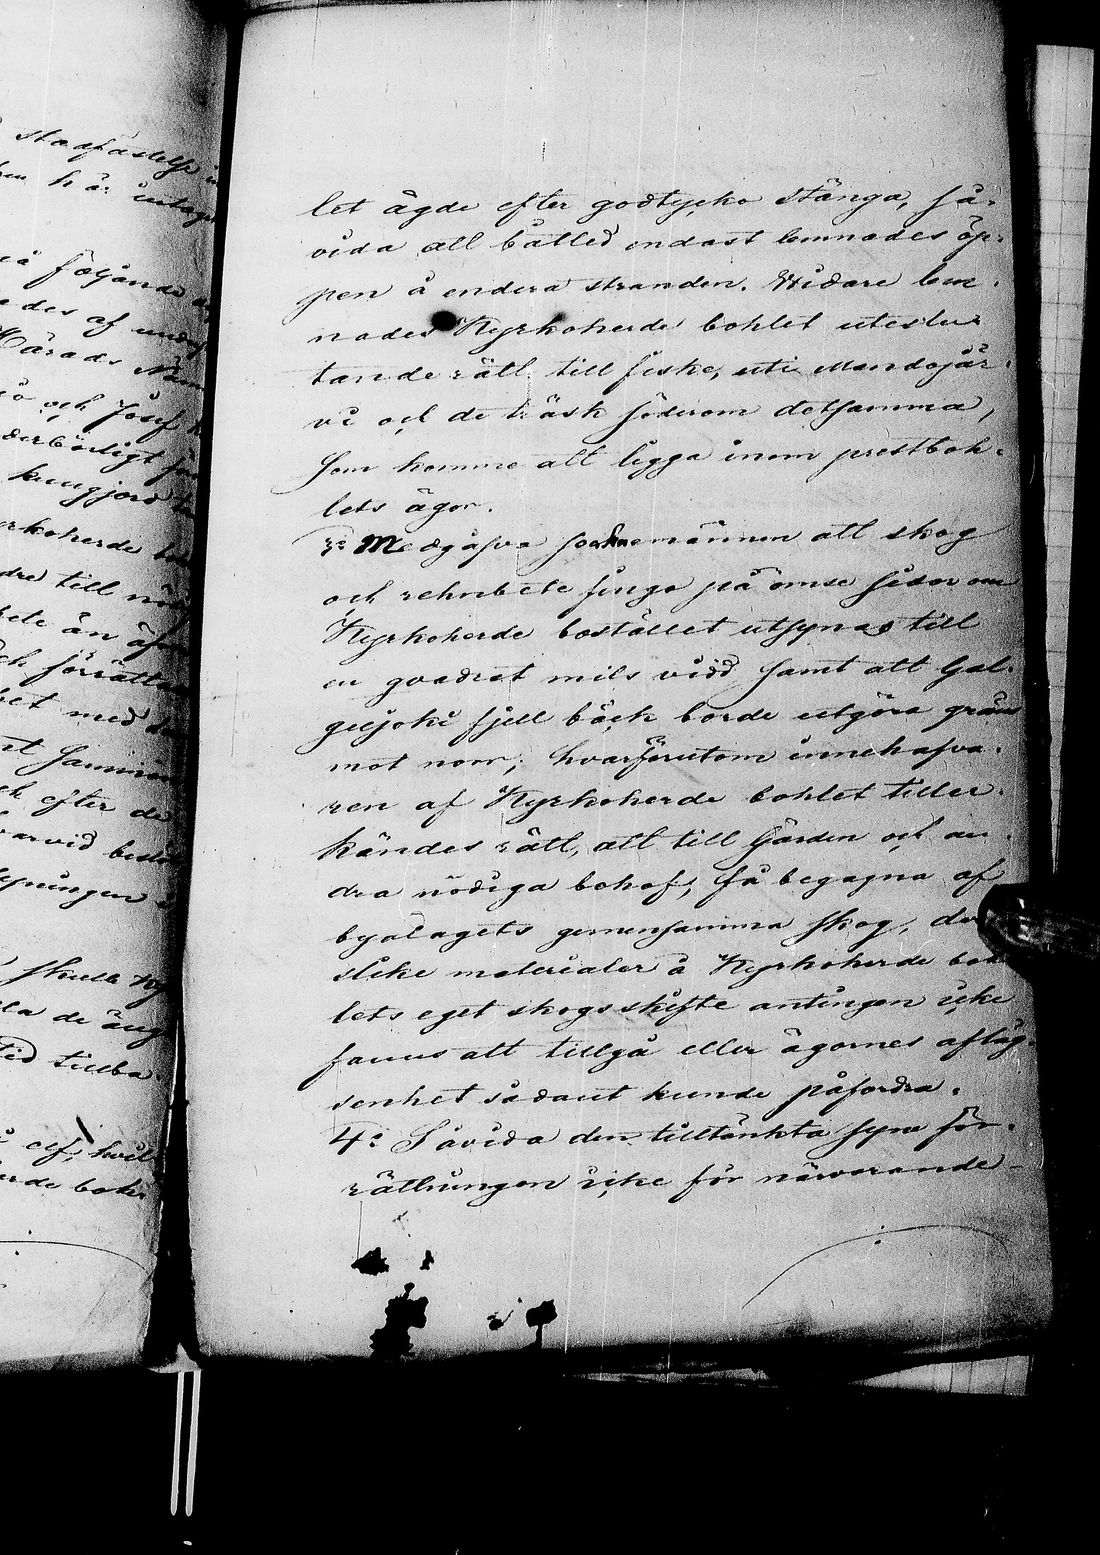 stadfästelse
här intaget
följande
ades af
Härads
och Josef
derbörligt
kungjord
rkoherde
dre till
bete än
och förrättad
het med
efter de
arvid
gningen
skulle
la de äng
tid tillba
elf, hvil
rde boh
let ägde efter godtycke stänga, så-
vida att båtled endast lemnades öp-
pen å endera stranden. Widare lem-
nades Kyrkoherde bohlet uteslu-
tande rätt till fiske, uti Mandojär-
vi och de träsk söderom detsamma,
som komme att ligga inom prestboh-
lets ägor.
3:o Medgåfvo sockнemännen att skog
och rehnbete finge på ömse sidor om
Kyrkoherde bostället utsynas till
en qvadrat mils vidd samt att Gal-
gujoki fjell bäck borde utgöra gräns
mot norr; hvarförutom innehafva-
ren af Kyrkoherde bohlet tiller-
kändes rätt, att till Gården och an-
dra nödiga behof, få begagna af
byalagets gemensamma skog, der
slike materialer å Kyrkoherde boh-
lets eget skogsskifte antingen icke
funnes att tillgå eller ägornes afläg-
senhet sådant kunde påfordra.
4:o Såvida den tilltänkta syne för-
rättningen icke för närvarande